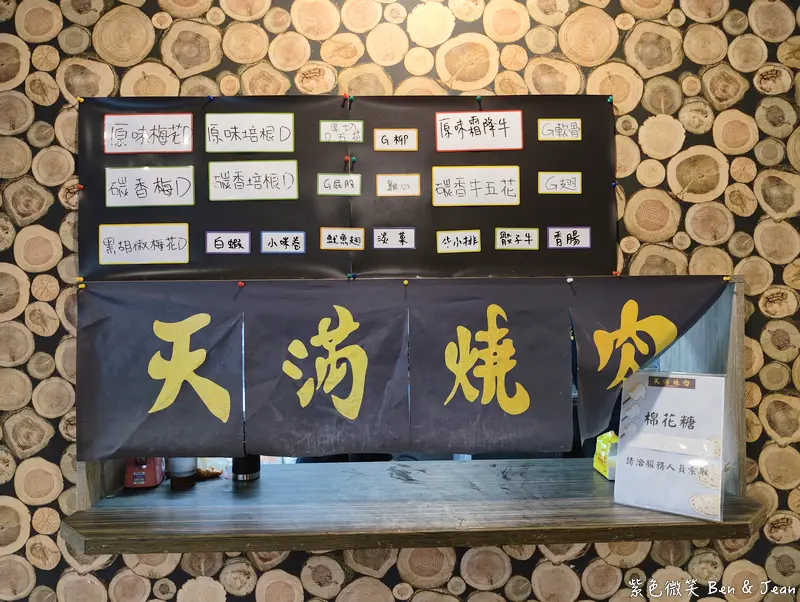 原味梅花D
原味培根D
黑切
D五花
G柳
原味霜降牛
G軟骨
碳香梅D
碳香培根D
G屁股
雞心
碳香牛五花
G翅
黑胡椒梅花D
白蝦
小米卷
魷魚翅
淡菜
牛小排
骰子牛
香腸
天滿燒肉
天滿燒肉
棉花糖
請洽服務人員索取
紫色微笑 Ben & Jean